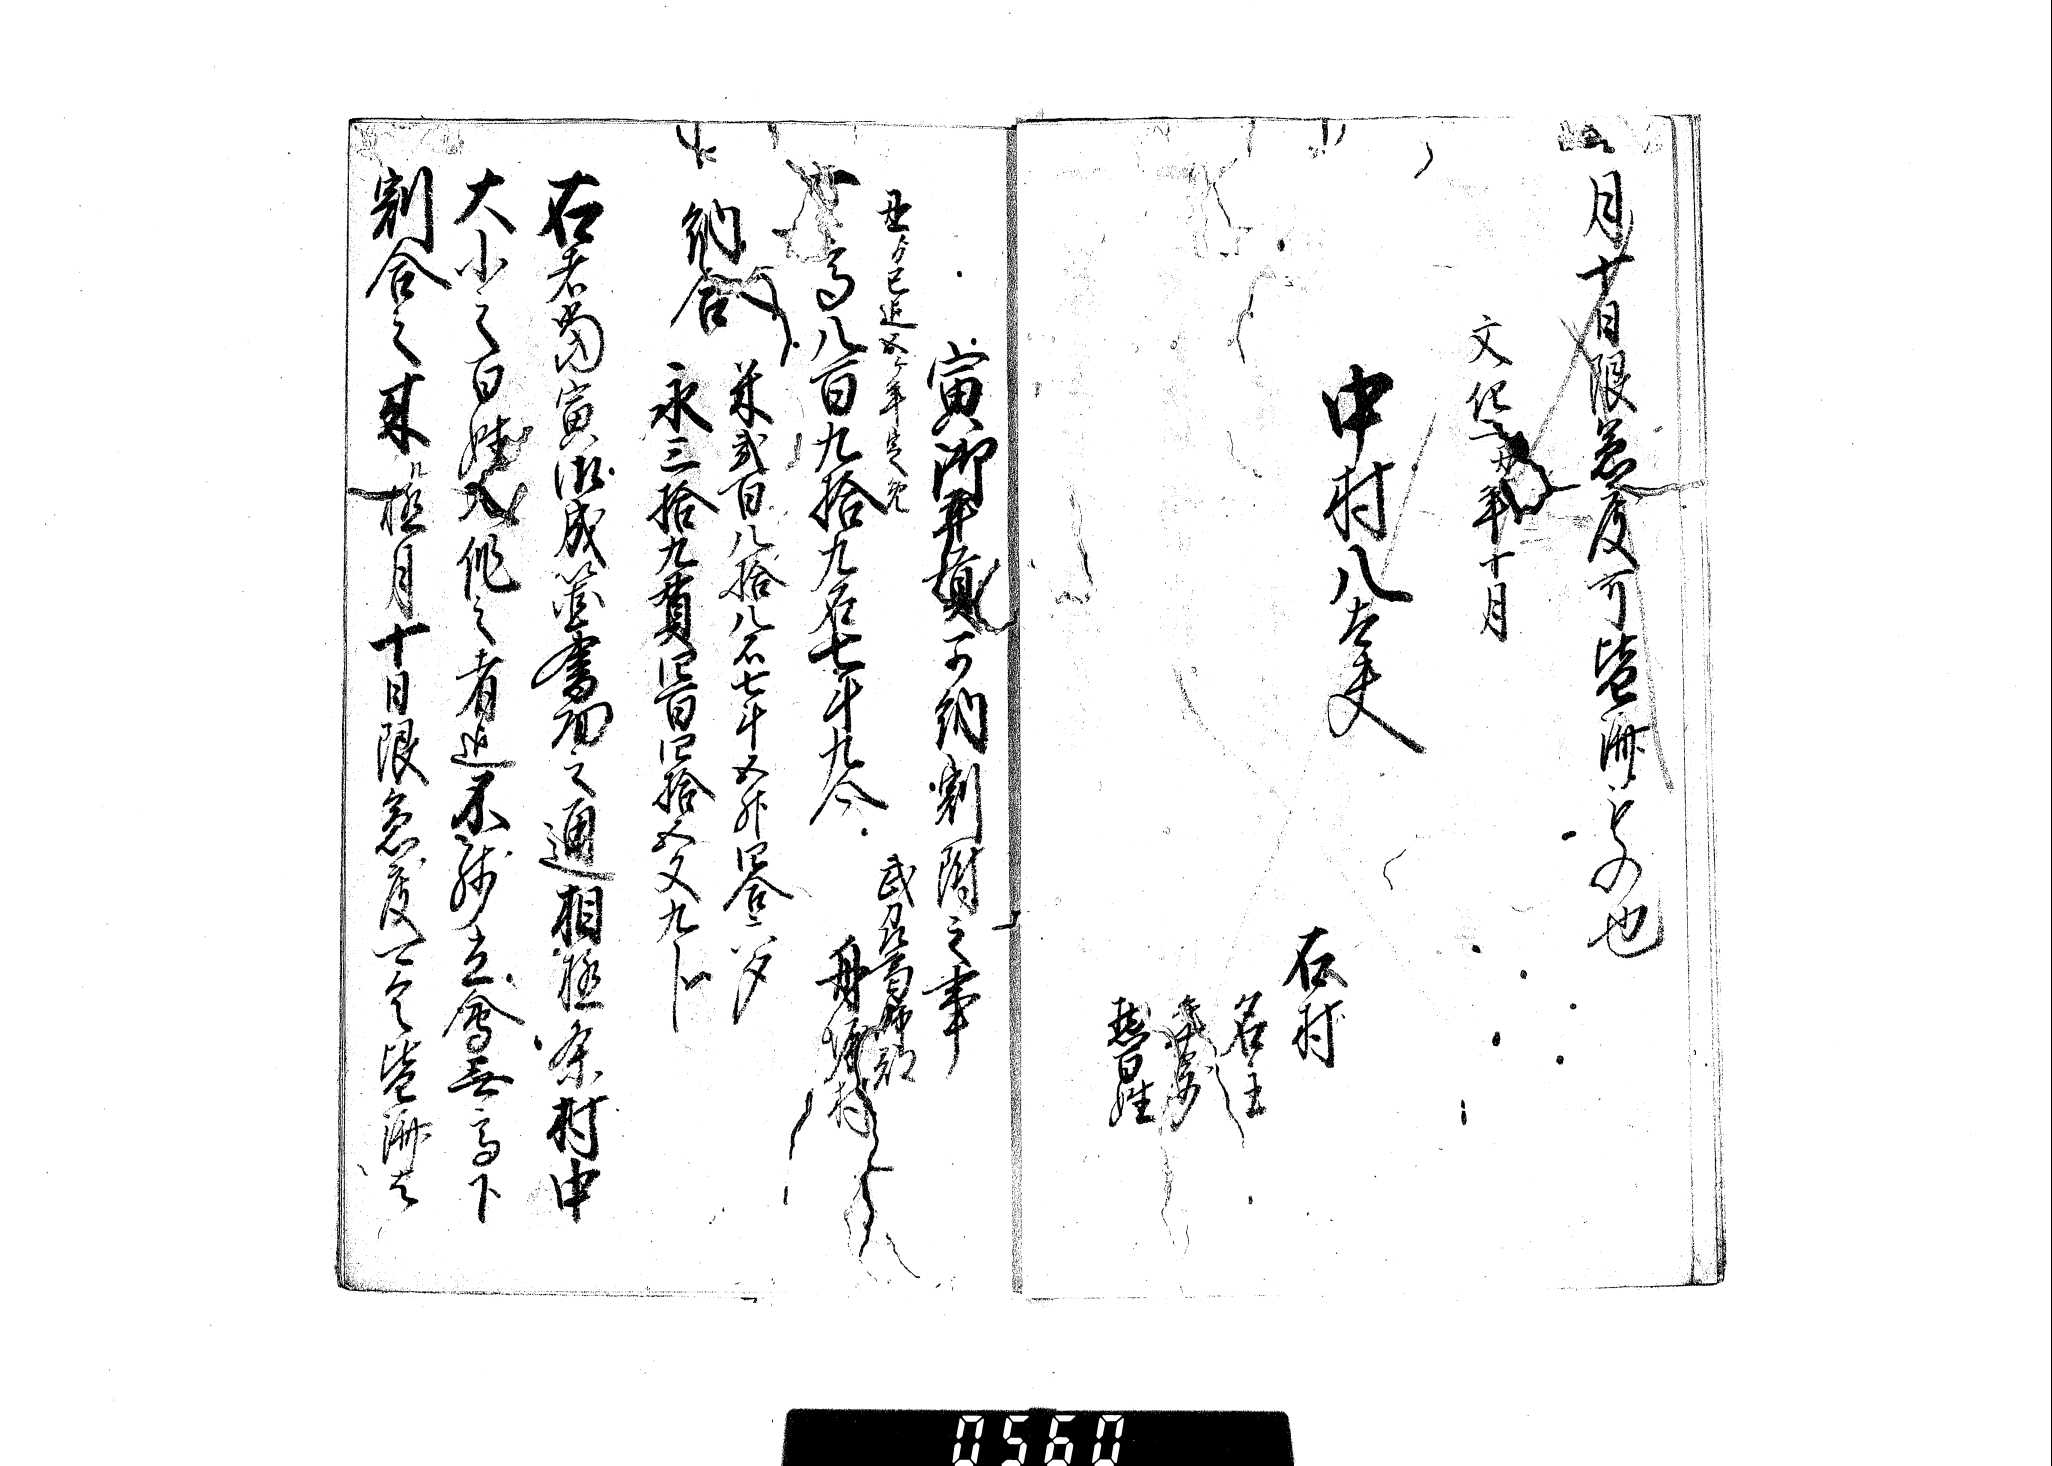 月廿日限急度可皆済もの也
文化二丑年十月
中村八太夫
右村
名主
惣百姓
寅御年貢可納割附之事
丑ゟ巳迄五ケ年定免
武州葛飾郡
一高八百九拾九石七斗九合
舟堀村
納合
米弐百八拾八石七斗五升四合二夕
永三拾九貫四百四拾五文九分
右者当寅御成箇書面之通相極条村中
大小之百姓入作之者迄不残立会無高下
割合之来極月十日限急度可令皆済者
0560